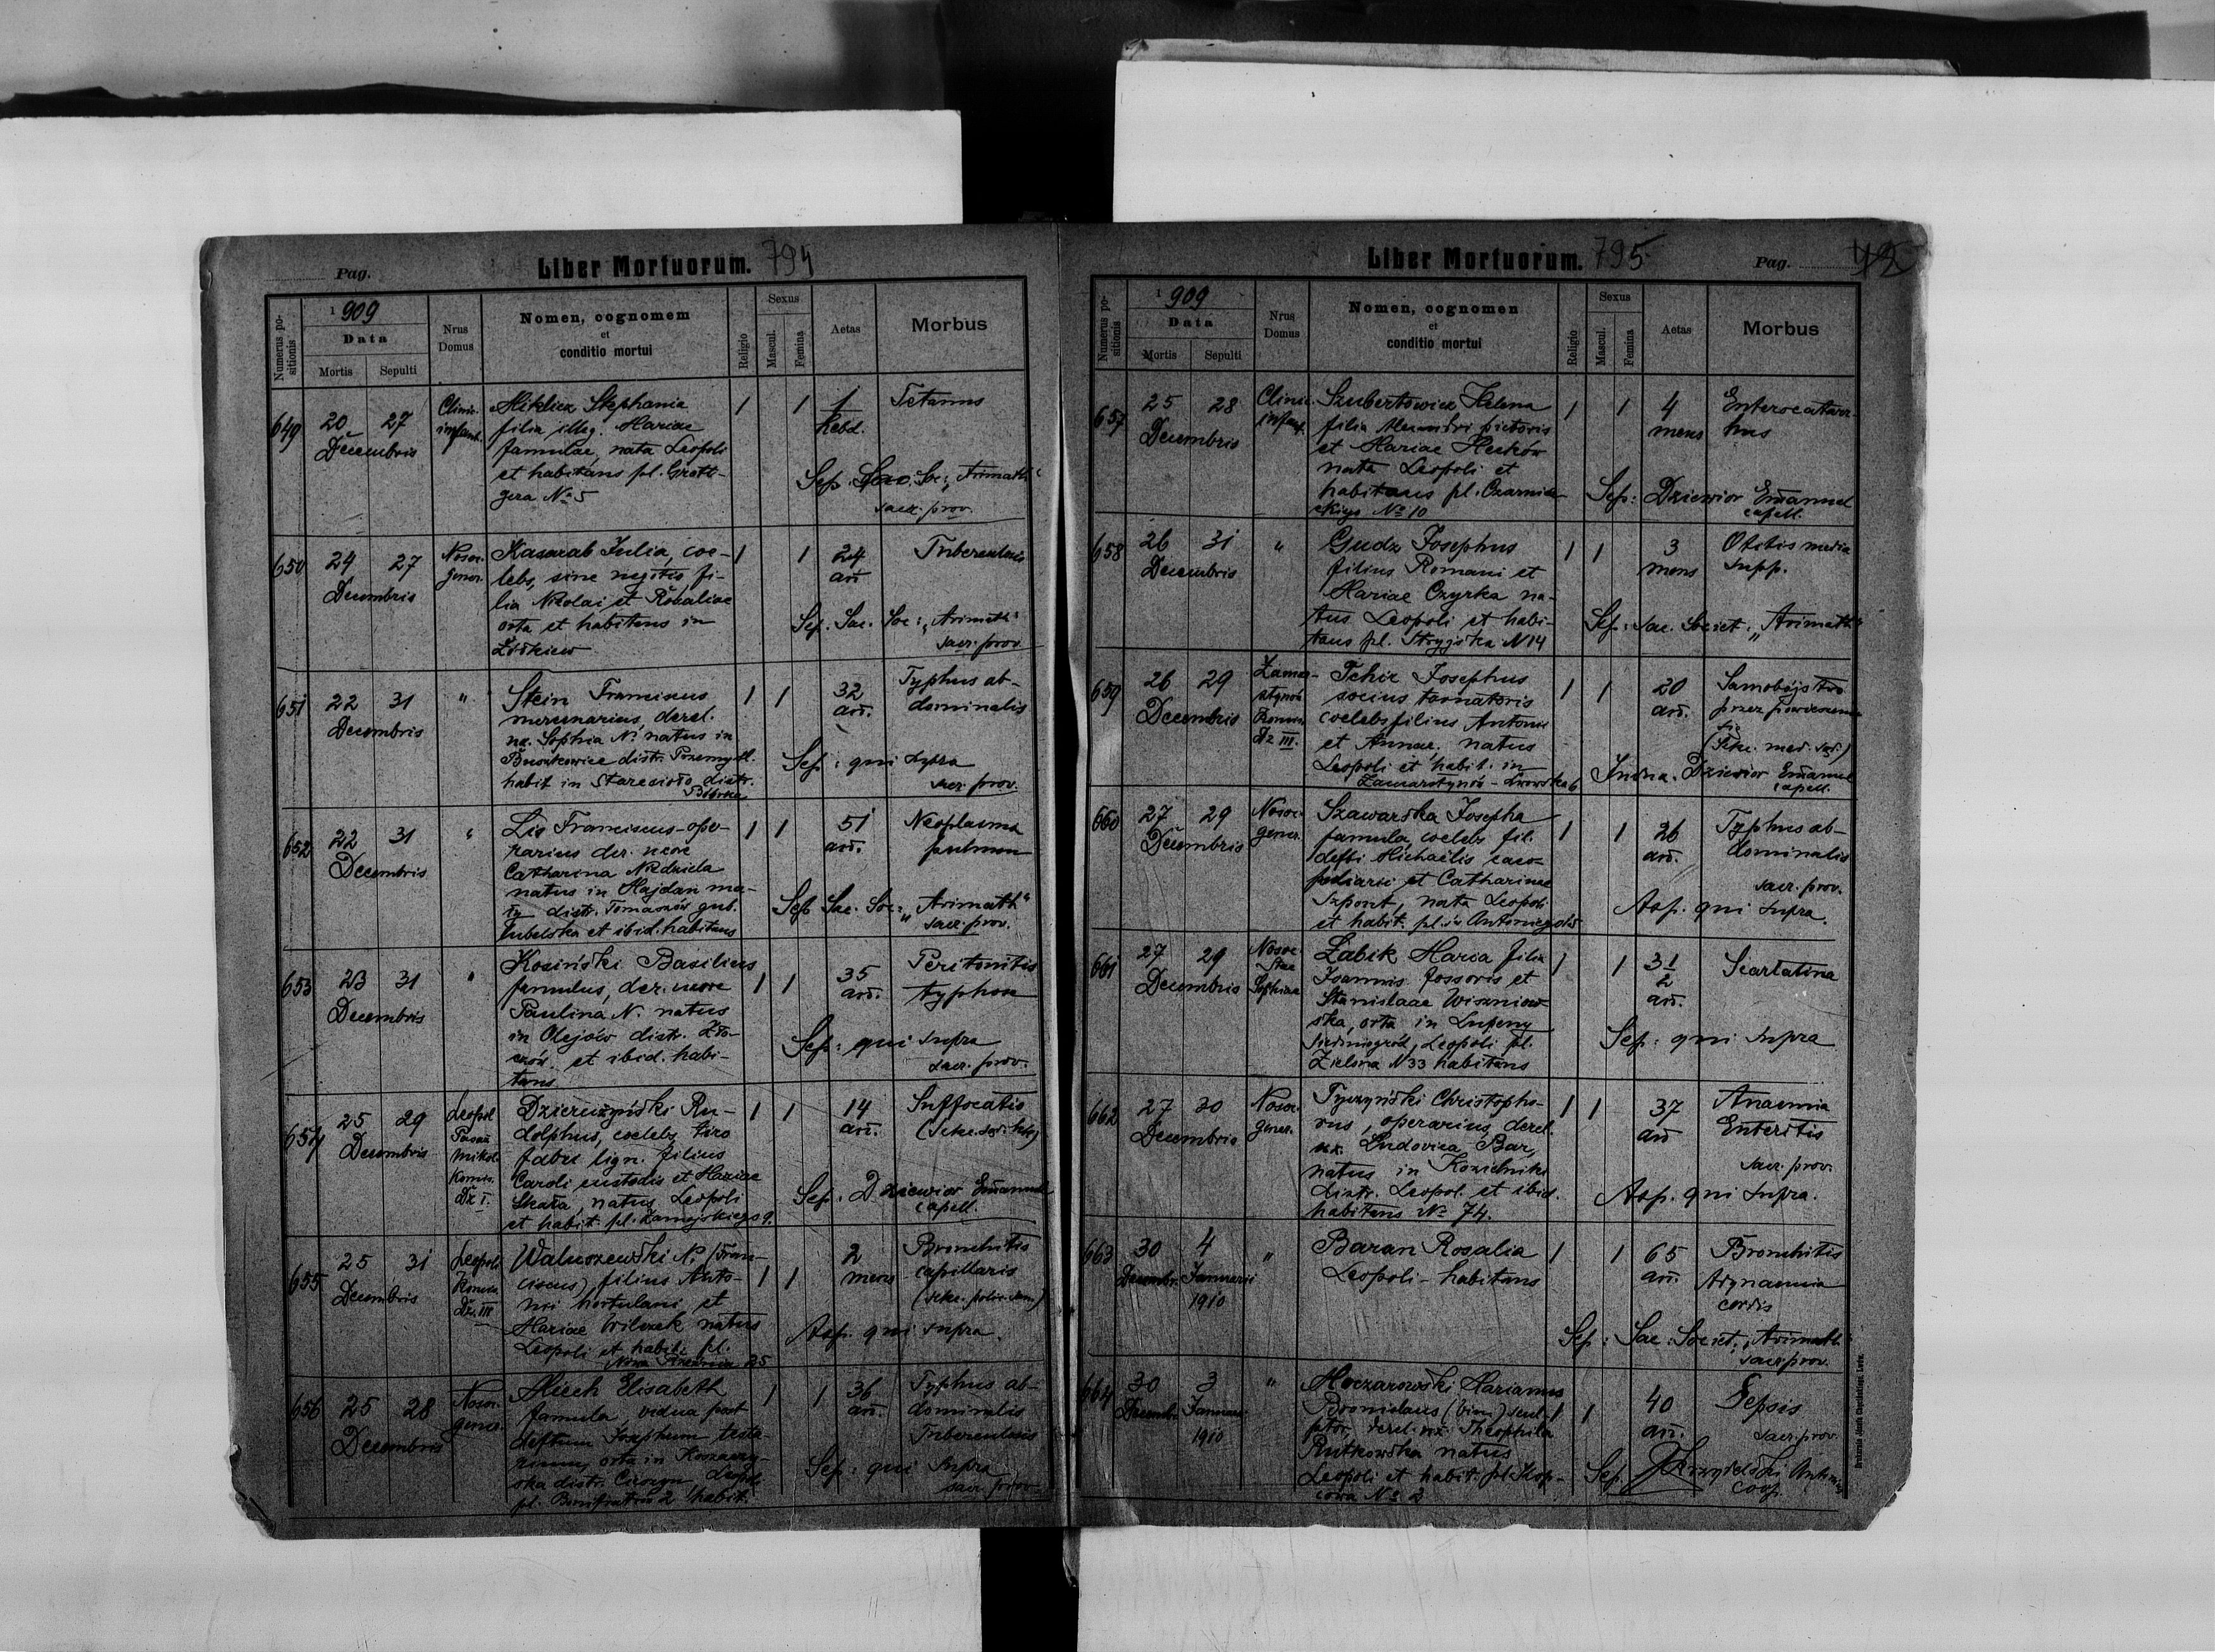 Pag.
Liber Mortuorum. 794
Numerus positionis
1909
Data
Mortis Sepulti
Nrus Domus
Nomen, cognomen
et
conditio mortui
Religio
Sexus
Mascul. Femina
Aetas
Morbus
649 20 27 Decembris
Clinic. infant.
Miklicz Stephania
filia illeg. Mariae
famulae, nata Leopoli
et habitans pl. Grott-
gera No 5
1 1 1 hebd.
Tetanus
Sep. Sac. Soc. „Arimath“
sacr. prov.
650 24 27 Decembris
Nosoc. gener.
Kasarab Julia, coe-
lebs, sine negotis, fi-
lia Nikolai et Rosaliae
orta et habitans in
Żółkiew
1 1 24 an.
Tuberculosis
Sep. Sac. Soc: „Arimath“
sacr. prov.
651 22 31 Decembris
"
Stein Franciscus
mercenarius, derel.
ux. Sophia N. natus in
distr. Przemyśl.
habit in Staresioło distr.
Bóbrka
1 1 32 an.
Typhus ab-
dominalis
Sep: qui supra
sacr. prov.
652 22 31 Decembris
"
Lis Franciscus - ope-
rarius der. uxore
Catharina Niedziela
natus in Majdan ma-
ły distr. Tomaszów gub.
Lubelska et ibid. habitans
1 1 51 an.
Neoplasma
pulmon
Sep Sac. Soc: „Arimath“
sacr. prov.
653 23 31 Decembris
"
Kosiński Basilius
famulus, der. uxore
Paulina N. natus
in Olejów distr. Zło-
czów et ibid. habi-
tans
1 1 35 an.
Peritonitis
typhosa
Sep: qui supra
sacr. prov.
654 25 29 Decembris
Leopol
Pasaż
Mikol.
Komis.
Dz I.
Dzierużyński Ru-
dolphus, coelebs, tiro
fabri lign. filius
Caroli custodis et Mariae
Skała, natus Leopoli
et habit. pl. Zamojskiego 9.
1 1 14 an.
Suffocatio
Sep. Dziewior Emanuel
capell.
655 25 31 Decembris
Leopoli
Komis.
Dz. III
Waluszewski N. (Fran-
ciscus) filius Anto-
nii hortulani et
Mariae Wilczek natus
Leopoli et habit. pl.
25
1 1 2 mens
Bronchitis
capillaris
Asp. qui supra.
656 25 28 Decembris
Nosoc. gener.
Miech Elisabeth
famula, vidua post
deftum Josephum
orta in
distr. Cieszyn, Leopoli
pl. Bonifratrów 2 habit.
1 1 36 an.
Typhus ab-
dominalis
Tuberculosis
Sep: qui supra
sacr. prov.
Liber Mortuorum. 795
Pag.
Numerus positionis
1909
Data
Mortis Sepulti
Nrus Domus
Nomen, cognomen
et
conditio mortui
Religio
Sexus
Mascul. Femina
Aetas
Morbus
657 25 28 Decembris
Clinic. infant.
Szubertowicz Helena
filia Alexandri pictoris
et Mariae Hecków
nata Leopoli et
habitans pl. Czarnie-
ckiego No 10
1 1 4 mens
Enterocatarr-
hus
Sep: Dziewior Emanuel
capell.
658 26 31 Decembris
"
Gudz Josephus
filius Romani et
Mariae Czyrka na-
tus Leopoli et habi-
tans pl. Stryjska N 14
1 1 3 mens
Otitis media
supp.
Sep: Sac. Societ. „Arimath“
659 26 29 Decembris
Zamar-
stynów
Komis.
Dz III.
Tchir Josephus
socius tornatoris
coelebs filius Antonii
et Annae. natus
Leopoli et habit. in
Zamarstynów - Lwowska 6
1 1 20 an.
Samobójstwo
przez powieszenie
się
Indua. Dziewior Emanuel
capell.
660 27 29 Decembris
Nosoc. gener.
Szawarska Josepha
famula, coelebs fil.
defti Michaelis
et Catharinae
Szpont, nata Leopoli
et habit. pl. św Antoniego
1 1 26 an.
Typhus ab-
dominalis
sacr. prov.
Asp. qui supra.
661 27 29 Decembris
Nosoc
Stae
Sophiae
Łabik Maria filia
Joannis fossoris et
Stanislaae Wiszniow-
ska, orta in Lupeny
Siedmiogród, Leopoli pl.
Zielona N 33 habitans
1 1 3 1/2 an.
Scarlatina
Sep: qui supra
662 27 30 Decembris
Nosoc. gener.
Tyczyński Christopho-
rus, operarius, derel.
ux. Ludovica Bar,
natus in Kozielniki
distr. Leopol. et ibid.
habitans No 74.
1 1 37 an
Anaemia
Enteritis
sacr. prov.
Asp. qui supra.
663 30 Decembr. 4 Januarii 1910
"
Baran Rosalia
Leopoli - habitans
1 1 65 an.
Bronchitis
Adynamia
cordis
Sep: Sac: Societ: „Arimath“
sacr. prov.
664 30 Decembr. 3 Januar. 1910
"
Moczarowski Marianus
Bronislaus (bin.) scul-
ptor, derel. ux. Theophila
Rutkowska natus
Leopoli et habit. pl. Kop-
cowa No 2
1 1 40 an.
Sepsis
sacr. prov.
Sep.
coop.